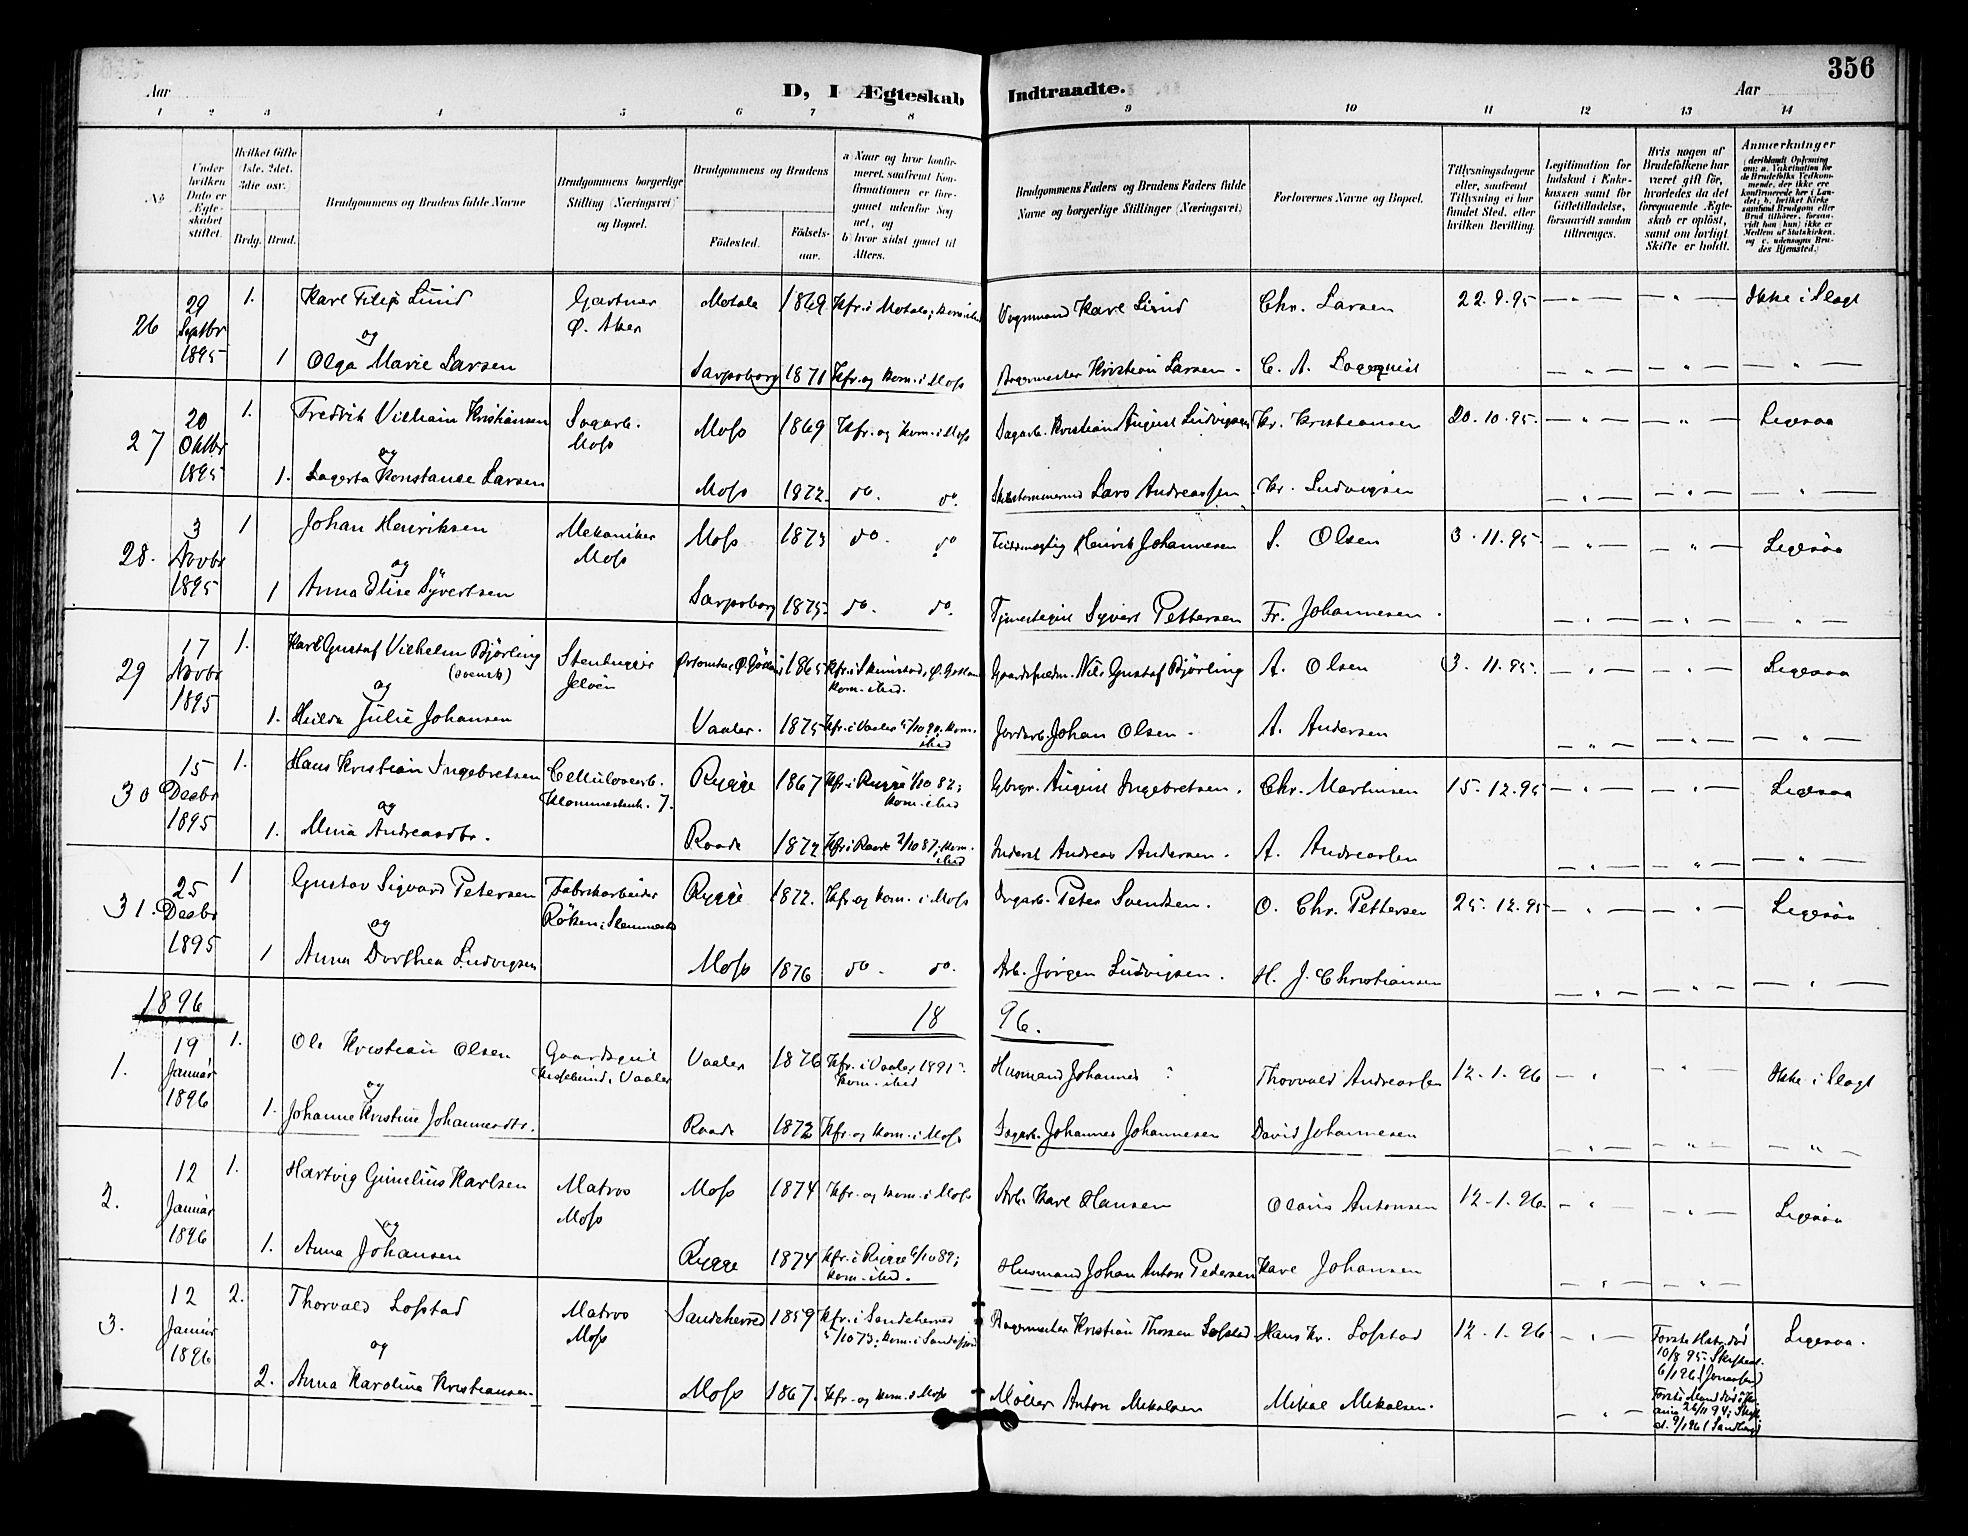 356
Aar
D, I Ægteskab Indtraadte.
Aar
1 2 3 4 5 6 7 8 9 10 11 12 13 14
No
Under hvilken Dato er Ægteskabet stiftet.
Hvilket Gifte (1ste, 2det, 3die osv.)
Brdg. Brud.
Brudgommens og Brudens fulde Navne
Brudgommens borgerlige Stilling (Næringsvei) og Bopæl.
Brudgommens og Brudens
Fødested. Fødsels-aar.
a) Naar og hvor konfirmeret, saafremt Konfirmationen er foregaaet udenfor Sognet, og
b) hvor sidst gaaet til Alters.
Brudgommens Faders og Brudens Faders fulde Navne og borgerlige Stillinger (Næringsvei)
Forlovernes Navne og Bopæl.
Tillysningsdagene eller, saafremt Tillysning ei har fundet Sted, efter hvilken Bevilling.
Legitimation for Indskud i Enkekassen samt for Giftetilladelse, forsaavidt saadan tiltrænges.
Hvis nogen af Brudefolkene har været gift før, hvorledes da det foregaaende Ægteskab er opløst, samt om lovligt Skifte er holdt.
Anmærkninger
26 29 Septbr 1895 1. Karl Filip Lund Gartner Ø. Aker Motala 1869 Kfr. i Motala; kom. ibid Vognmand Karl Lund Chr. Larsen 22.9.95 Ikke i Slægt
og
1 Olga Marie Larsen Sarpsborg 1871 Kfr. og kom. i Moss Bagermester Kristian Larsen. C. A. Lagerquist
27 20 Oktbr 1895 1. Fredrik Vilhelm Kristiansen Sagarb. Moss Moss 1869 Kfr. og kom. i Moss Sagarb. Kristian August Ludvigsen Kr. Kristiansen 20.10.95. Ligesaa
og
1. Lagerta Konstanse Larsen Moss 1872. do. do. Skibstømmermd Lars Andreassen Kr. Ludvigsen
28. 3 Novbr 1895 1 Johan Henriksen Mekaniker Moss Moss 1873 do. do Fuldmægtig Henrik Johannesen S. Olsen 3.11.95. Ligesaa
og
1 Anna Elise Syvertsen Sarpsborg 1875. do. do. Syvert Pettersen Fr. Johannesen.
29 17 Novbr 1895 1. Karl Gustaf Vilhelm Björling (svensk) Stenhugger Jeløen 1865 Kfr. i Ø. Gøtland kom. ibid. Nils Gustaf Björling A. Olsen 3.11.95. Ligesaa
og
1. Hilda Julie Johansen Vaaler. 1875 Kfr. i Vaaler 5/10 90. kom. ibid Jordarb. Johan Olsen. A. Andersen
30 15 Decbr 1895 1. Hans Kristian Ingebretsen Cellulosearb. Rygge 1867 Kfr. i Rygge 1/10 82; kom. ibid Gbrgr. August Ingebretsen. Chr. Martinsen 15.12.95 Ligesaa
og
1. Mina Andreasdtr. Raade 1872 Kfr. i Raade 2/10 87; kom. ibid Inderst Andreas Andersen. A. Andreassen
31. 25 Decbr 1895 1 Gustav Sigvard Petersen Fabrikarbeider Røken, Slemmestad Rygge 1872. Kfr. og kom. i Moss Sagarb. Peter Svendsen. O. Chr. Pettersen 25.12.95 Ligesaa
og
1 Anna Dorthea Ludvigsen Moss 1876 do. do. Arb. Jørgen Ludvigsen. H. J. Christiansen
1896 18 96.
1. 19 Januar 1896 1. Ole Kristian Olsen Gaardsgut Vaaler Vaaler 1876 Kfr. i Vaaler 1891. kom. ibid Husmand Johannes Thorvald Andreassen 12.1.96 Ikke i Slægt
og
1. Johanne Kristine Johannesdtr. Raade 1872 Kfr. og kom. i Moss Sagarb. Johannes Johannesen David Johannesen
2. 12 Januar 1896 1. Hartvig Gunelius Karlsen Matros Moss Moss 1874 Kfr. og kom. i Moss Arb. Karl Hansen Olaus Antonsen 12.1.96. Ligesaa
og
1. Anna Johansen Rygge 1874 Kfr. i Rygge 6/10 89; kom. ibid. Husmand Johan Anton Pedersen Karl Johansen
3. 12 Januar 1896 2. Thorvald Lofstad Matros Moss Sandeherred 1859 Kfr. i Sandeherred 5/10 73; kom. i Sandefjord Bagermester Kristian Thorsen Lofstad Hans Kr. Lofstad 12.1.96 Første Hustr. død 10/8 95. Skifteat. 6/1 96 Ligesaa.
og
2. Anna Karolina Kristiansen. Moss 1867. Kfr. og kom. i Moss Møller Anton Mikalsen Mikal Mikalsen. Første Mand død i 26/11 94; 9/1 96